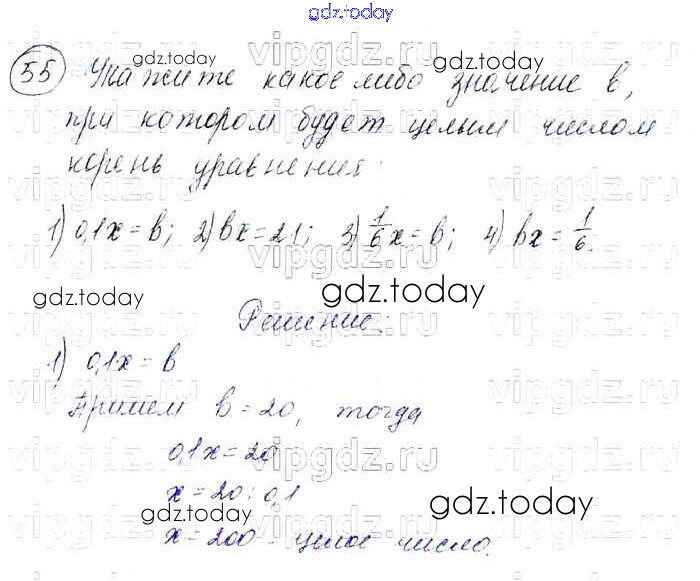 gdz.today
55 Укажите какое либо значение b,
при котором будет целым числом
корень уравнения:
1) 0,1x = b; 2) bx = 21; 3) 1/6 x = b; 4) bx = 1/6.
gdz.today
gdz.today
Решение:
1) 0,1x = b
Примем b = 20, тогда
0,1x = 20
x = 20 : 0,1
x = 200 - целое число.
gdz.today
gdz.today
gdz.today
vipgdz.ru